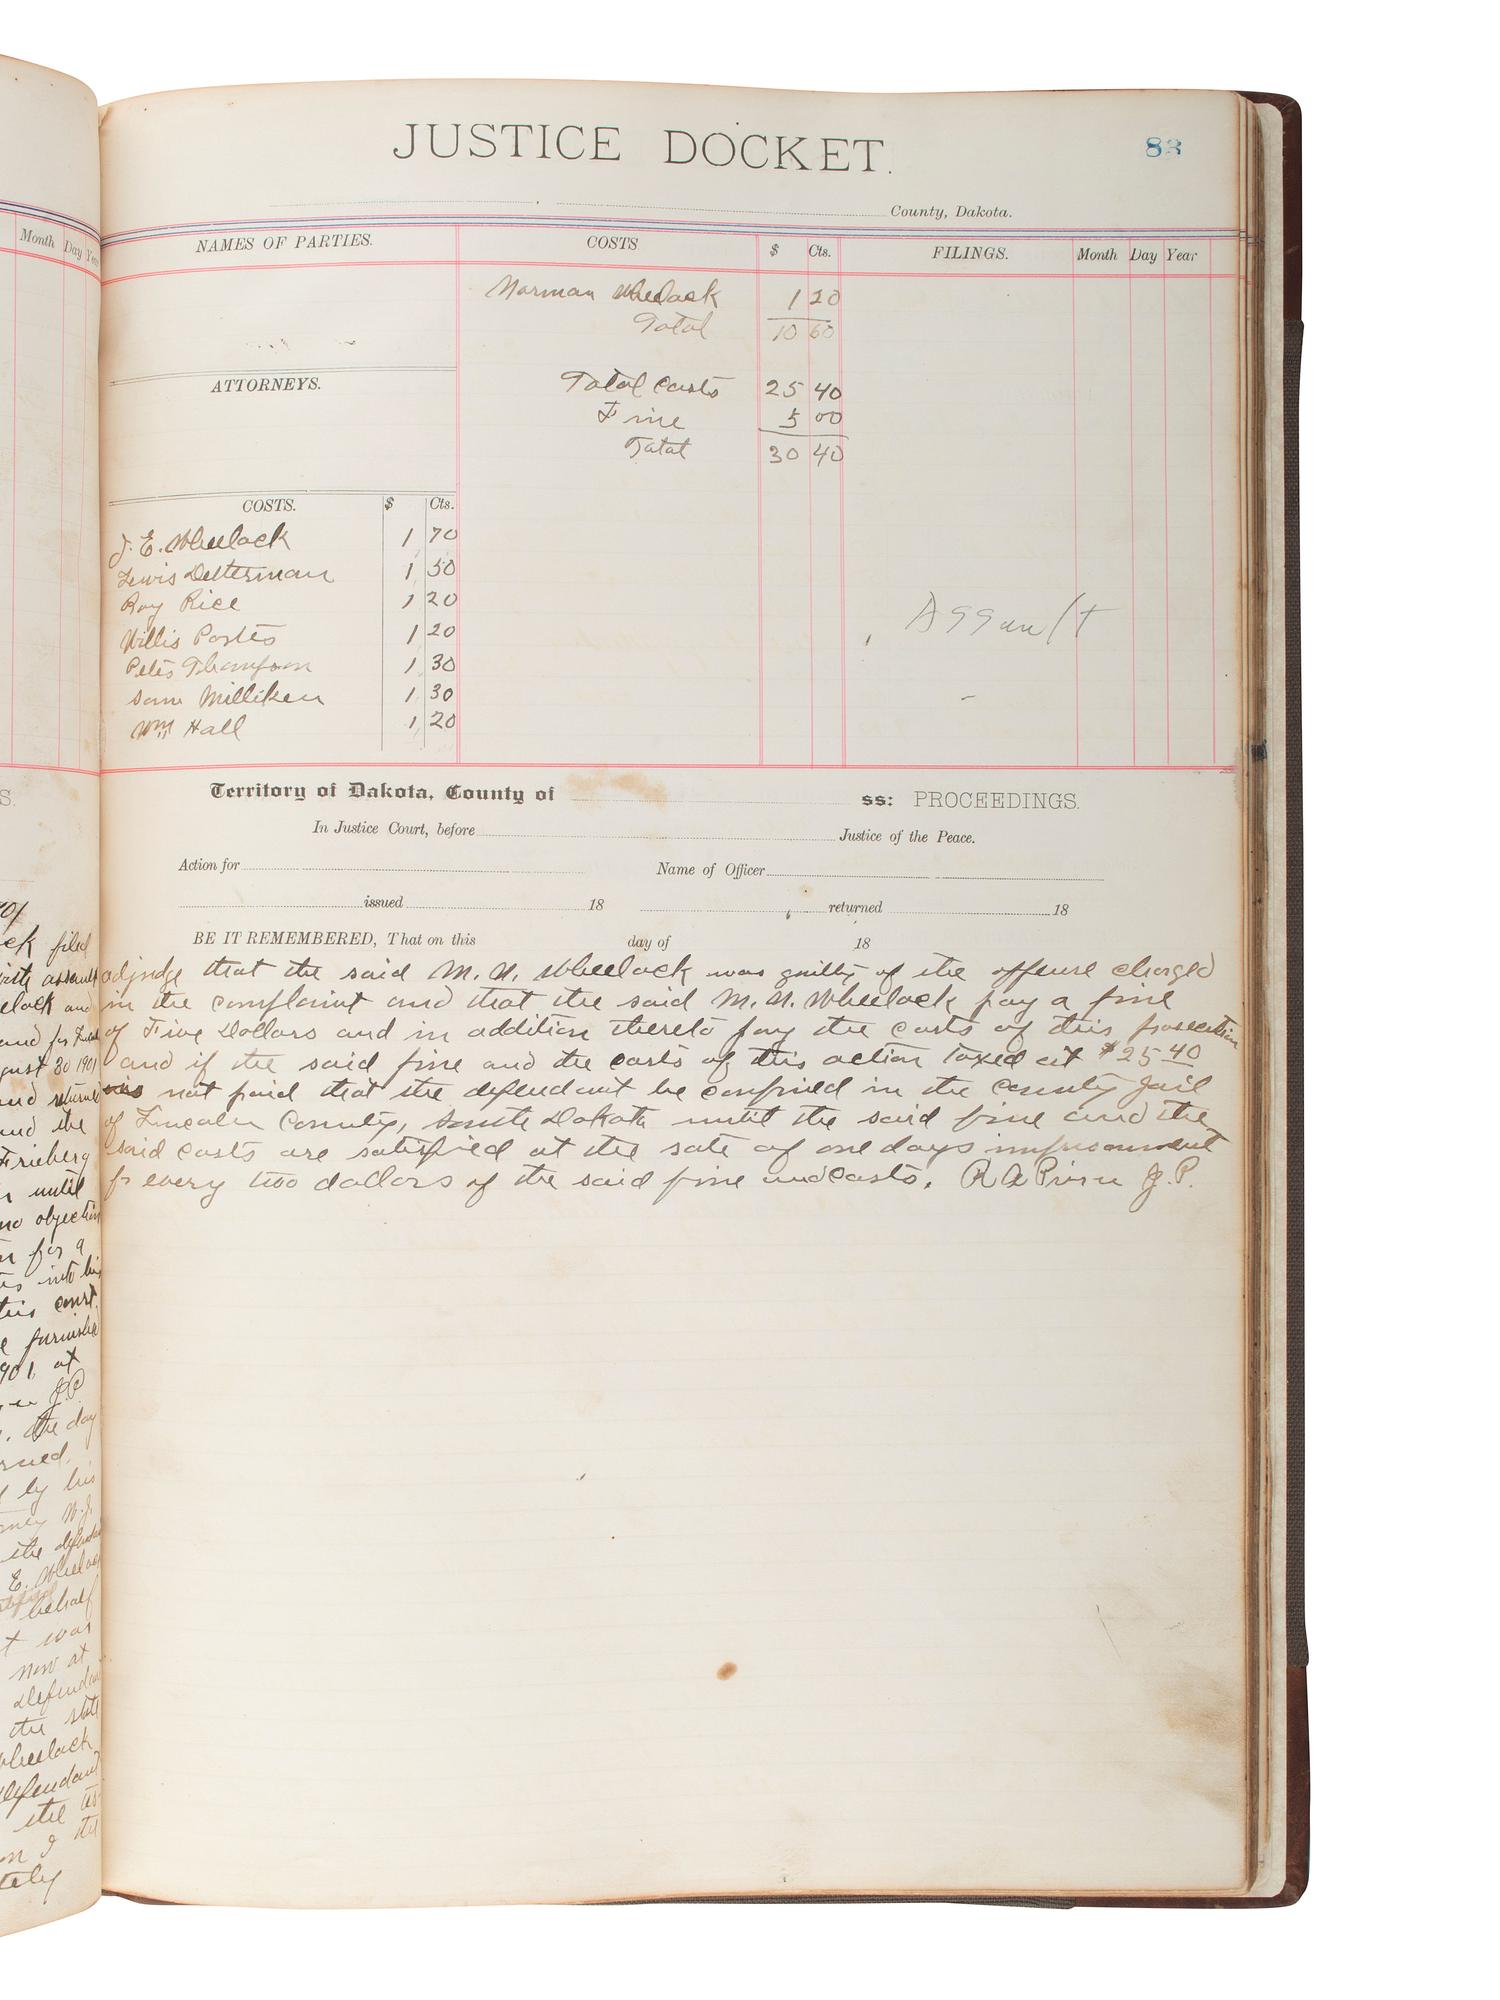 JUSTICE DOCKET.
83
County, Dakota.
Month Day Year
NAMES OF PARTIES.
COSTS
$ Cts.
FILINGS.
Month Day Year
Norman Wheelock 1 20
Total 10 60
ATTORNEYS.
Total Costs 25 40
Fine 5 00
Total 30 40
COSTS. $ Cts.
J. E. Wheelock 1 70
Lewis Detterman 1 50
Roy Rice 1 20
Willis Portes 1 20
Pete Thompson 1 30
Sam Milliken 1 30
Wm Hall 1 20
Assault
Territory of Dakota, County of ss: PROCEEDINGS.
In Justice Court, before Justice of the Peace.
Action for Name of Officer
issued 18 returned 18
BE IT REMEMBERED, That on this day of 18
adjudge that the said M. N. Wheelock was guilty of the offense charged
in the complaint and that the said M. N. Wheelock pay a fine
of Five Dollars and in addition thereto pay the costs of this prosecution
and if the said fine and the costs of this action taxed at $25 40
is not paid that the defendant be confined in the county jail
of Lincoln County, South Dakota until the said fine and the
said costs are satisfied at the rate of one days imprisonment
for every two dollars of the said fine and costs. R A J.P.
ck filed
elock and
gust 30 1901
and returned
and the
Frieberg
until
no objection
for a
into his
this court.
furnished
901 at
J.P.
the day
by his
the
E. Wheelock
behalf
t was
now at
defendant
the state
Wheelock
defendant
the